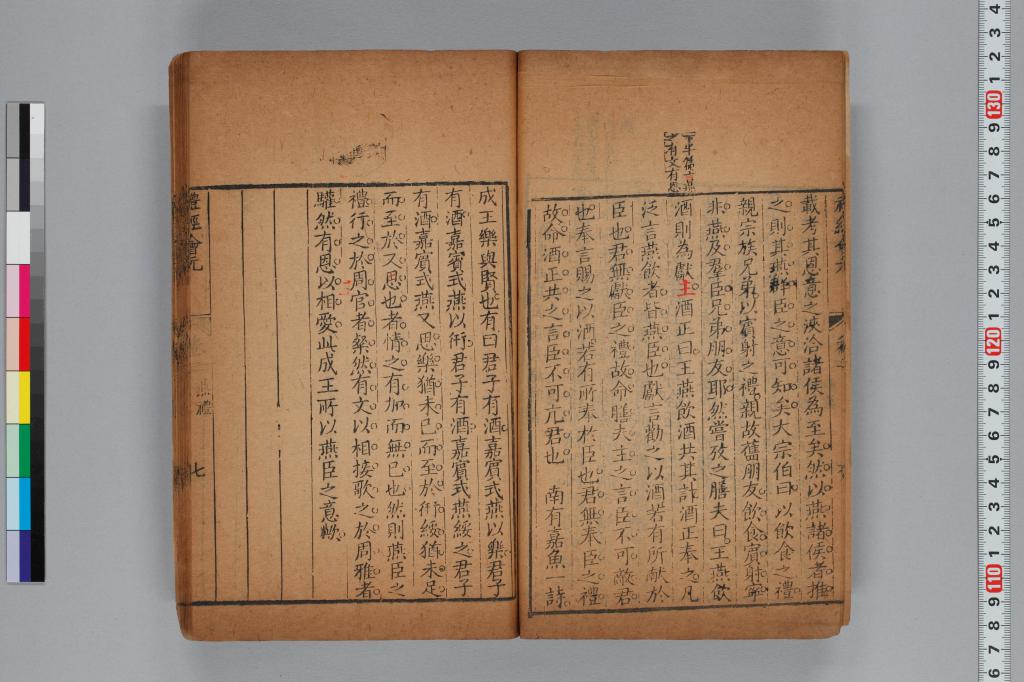 下半篇
有文有恩
載考其恩意之浹洽諸侯為至矣然以燕諸侯者推
之則其燕群臣之意可知矣大宗伯曰以飲食之禮
親宗族兄弟以賓射之禮親故舊朋友飲食賓射寧
非燕及羣臣兄弟朋友耶然嘗攷之膳夫曰王燕飲
酒則為獻主酒正曰王燕飲酒共其計酒正奉之凡
泛言燕飲者皆燕臣也獻言勸之以酒若有所献於
臣也君無獻臣之禮故命膳夫主之言臣不可敵君
也奉言賜之以酒若有所奉於臣也君無奉臣之禮
故命酒正共之言臣不可亢君也 南有嘉魚一詩
成王樂與賢也有曰君子有酒嘉賓式燕以樂君子
有酒嘉賓式燕以衎君子有酒嘉賓式燕綏之君子
有酒嘉賓式燕又思樂猶未已而至於衎綏猶未足
而至於又思也者情之有加而無已也然則燕臣之
禮行之於周官者粲然有文以相接歌之於周雅者
驩然有恩以相愛此成王所以燕臣之意歟
禮經會元
燕禮
七